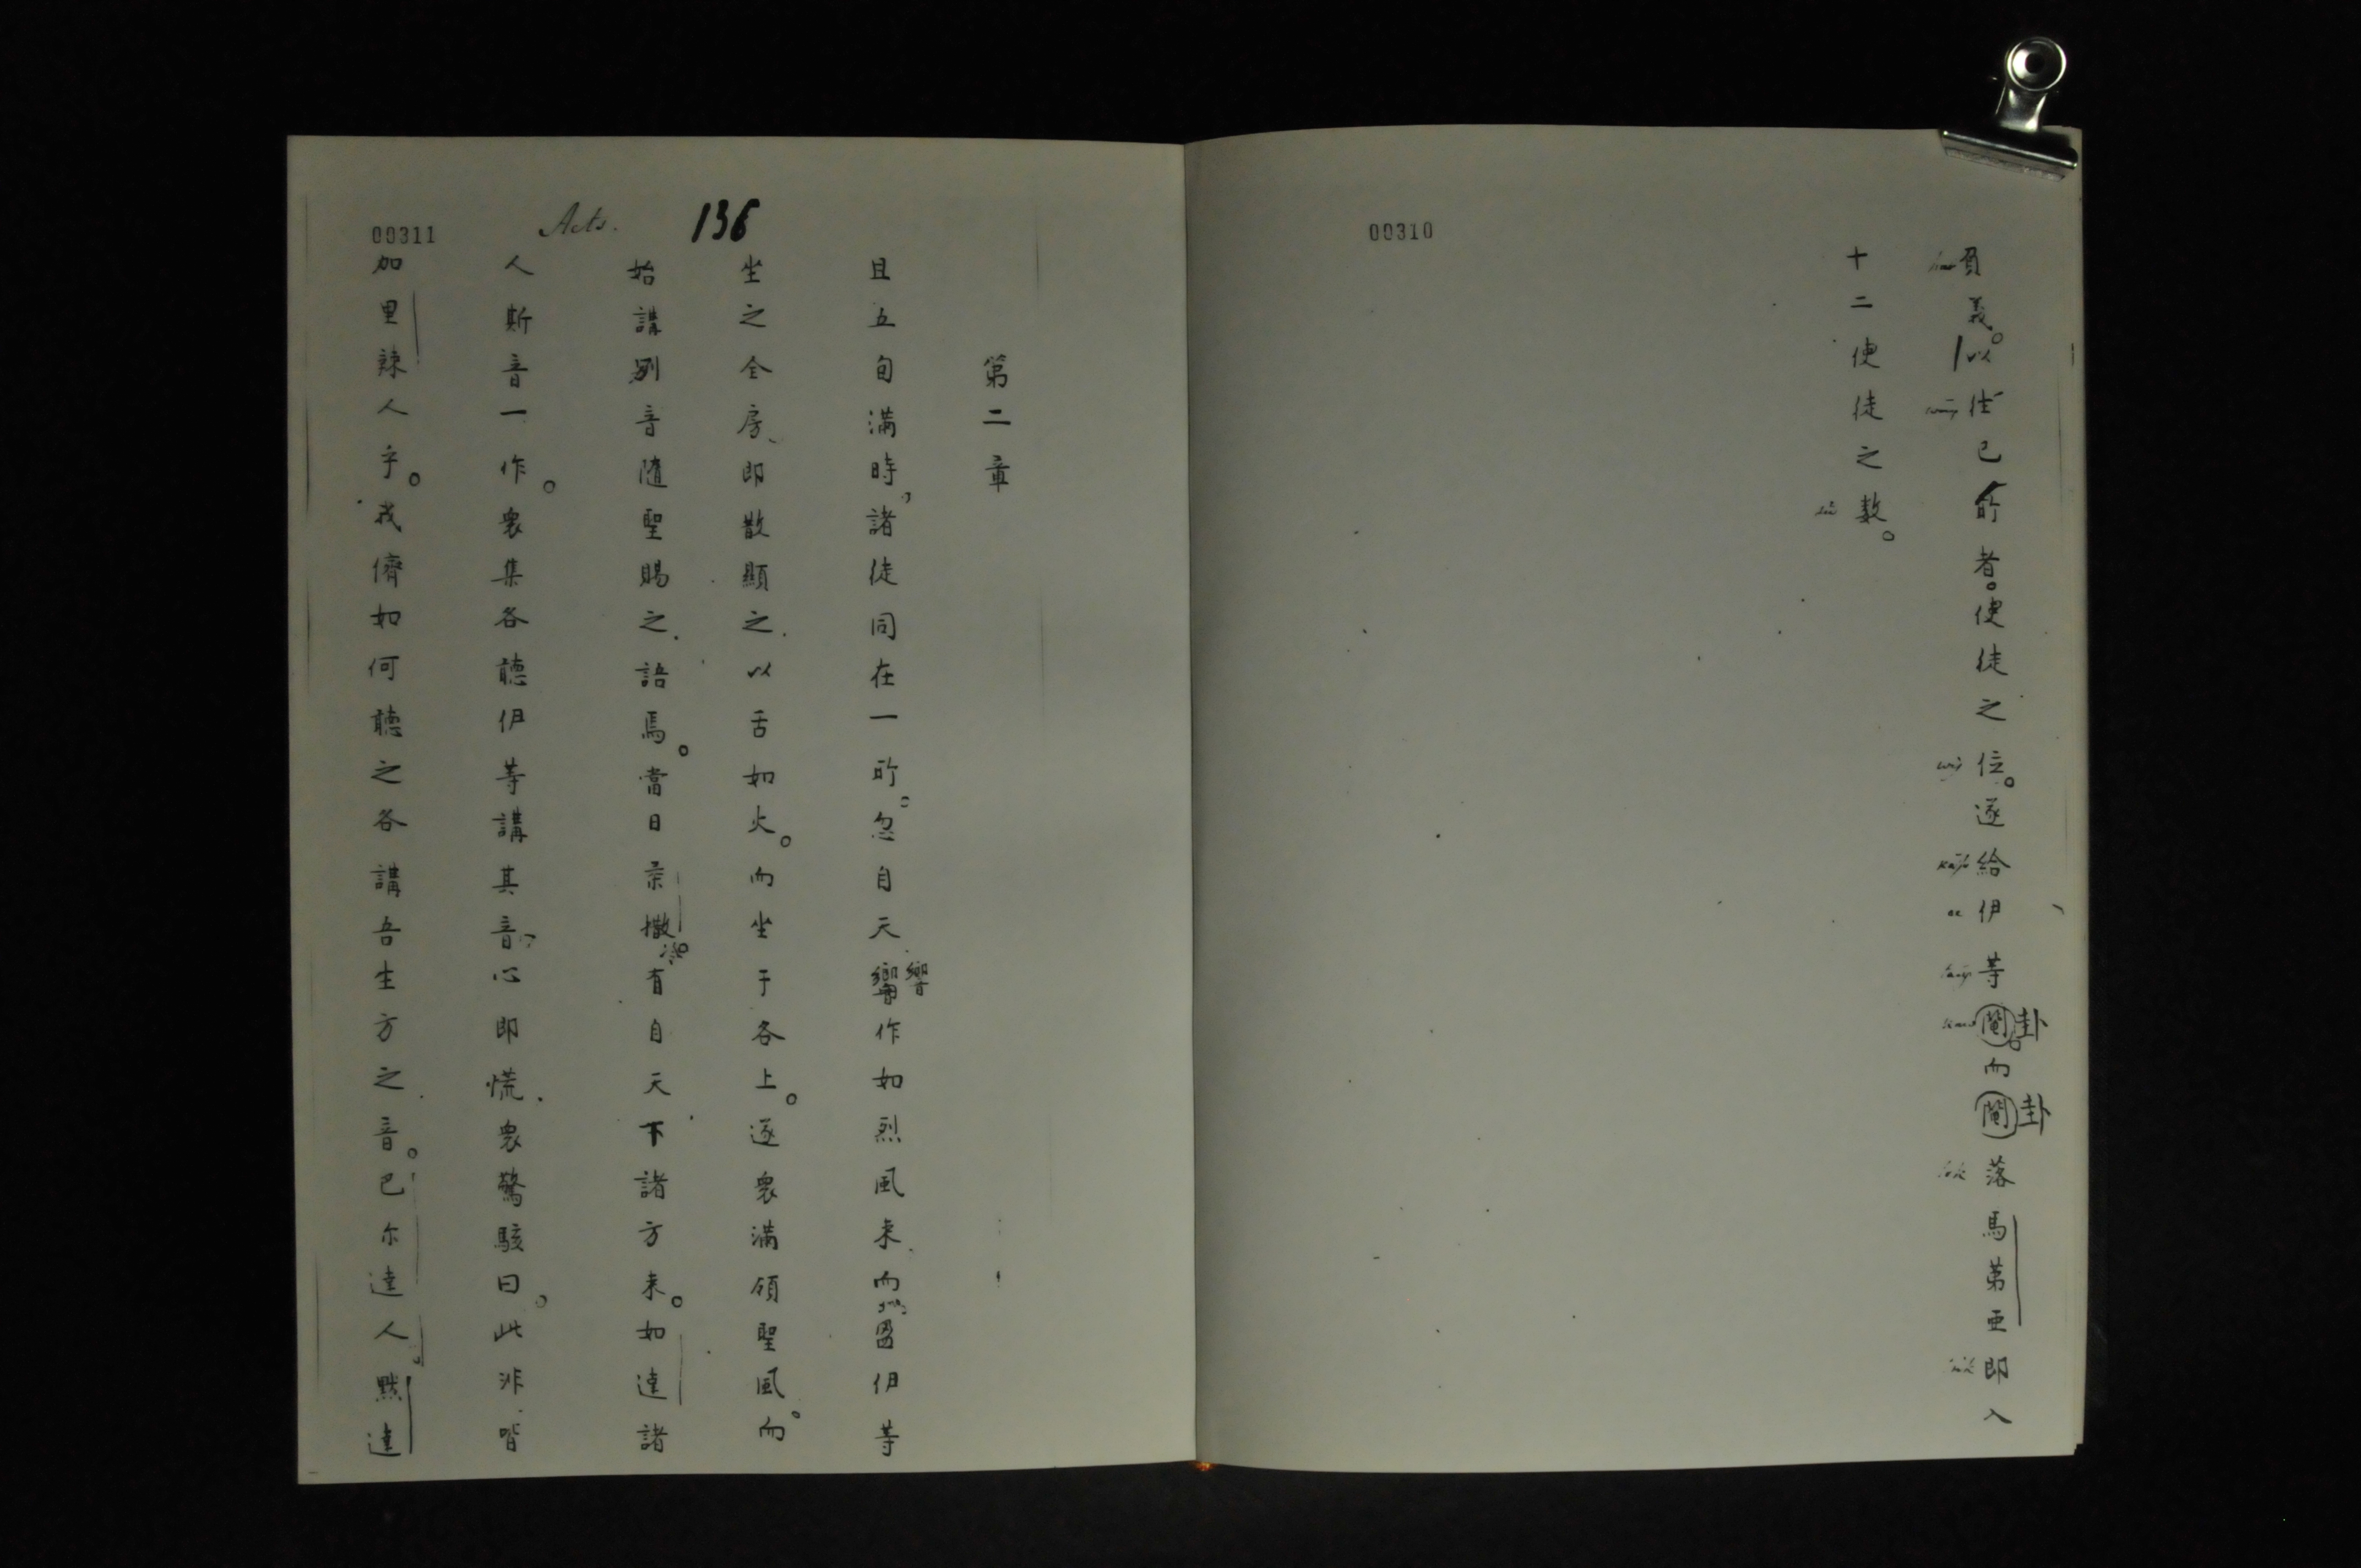 00310
負義。以徃已所者。使徒之位。逐給伊等鬮。而鬮落馬第亜即入
卦
卦
十二使徒之数。
00311
Acts.
136
第二章
且五旬满時。諸徒同在一所。忽自天響作如烈風来、而圀伊等
響
坐之全房、即散顯之.以舌如火。而坐于各上。逐衆满領聖風。而
始講别音随聖賜之.語焉。當日柔撒冷。有自天下諸方来。如達諸
人斯音一作。衆集各聽伊等講其音。心即慌.衆驚駭曰。此非皆
加里辣人乎。我儕如何聽之各講吾生方之音。巴尔達人。黙達